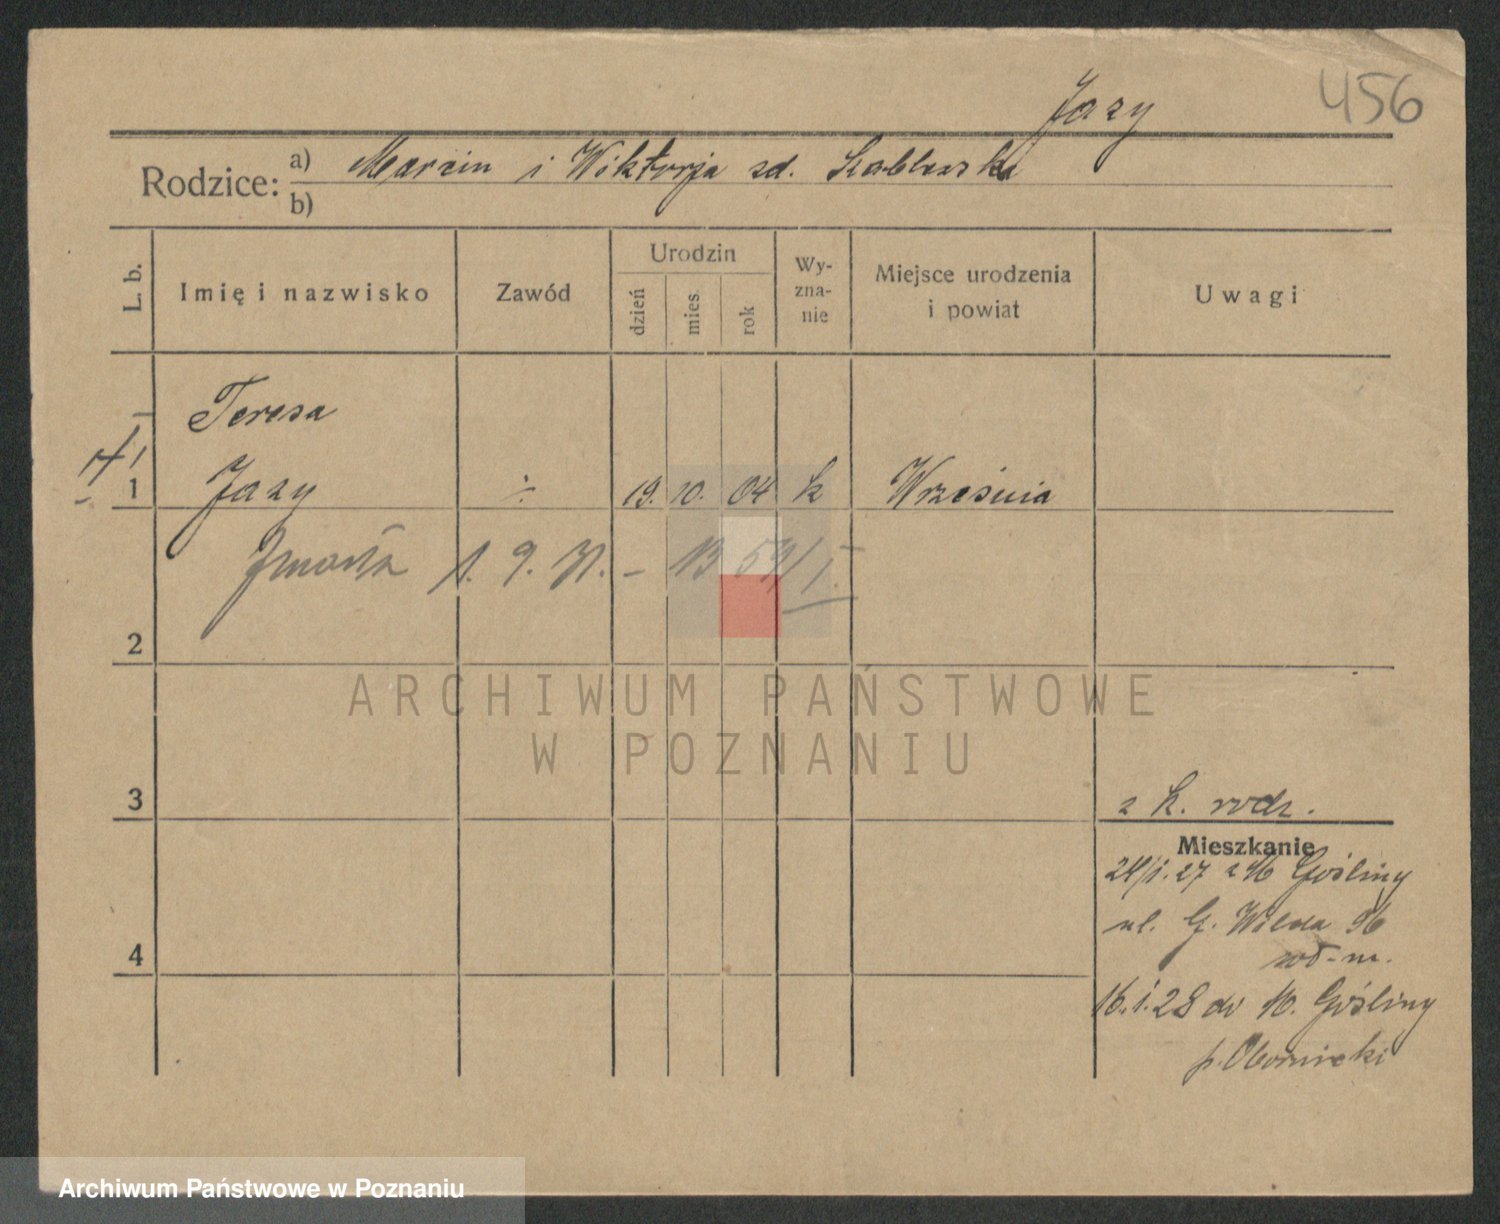 456
Jazy
Rodzice:
a) Marcin i Wiktorja zd. Szablewska
b)
L. b.
Imię i nazwisko
Zawód
Urodzin
dzień
mies.
rok
Wy-
zna-
nie
Miejsce urodzenia
i powiat
Uwagi
Teresa
1 Jazy ÷ 19. 10. 04 k Września
Zmarła 1. 9. 31. –
2
3
z k. rodz.
Mieszkanie
24/1.27 z M Gośliny
ul. G. Wilda 96
4
16.1.28 do M. Gośliny
p. Obornicki
ARCHIWUM PAŃSTWOWE
W POZNANIU
Archiwum Państwowe w Poznaniu